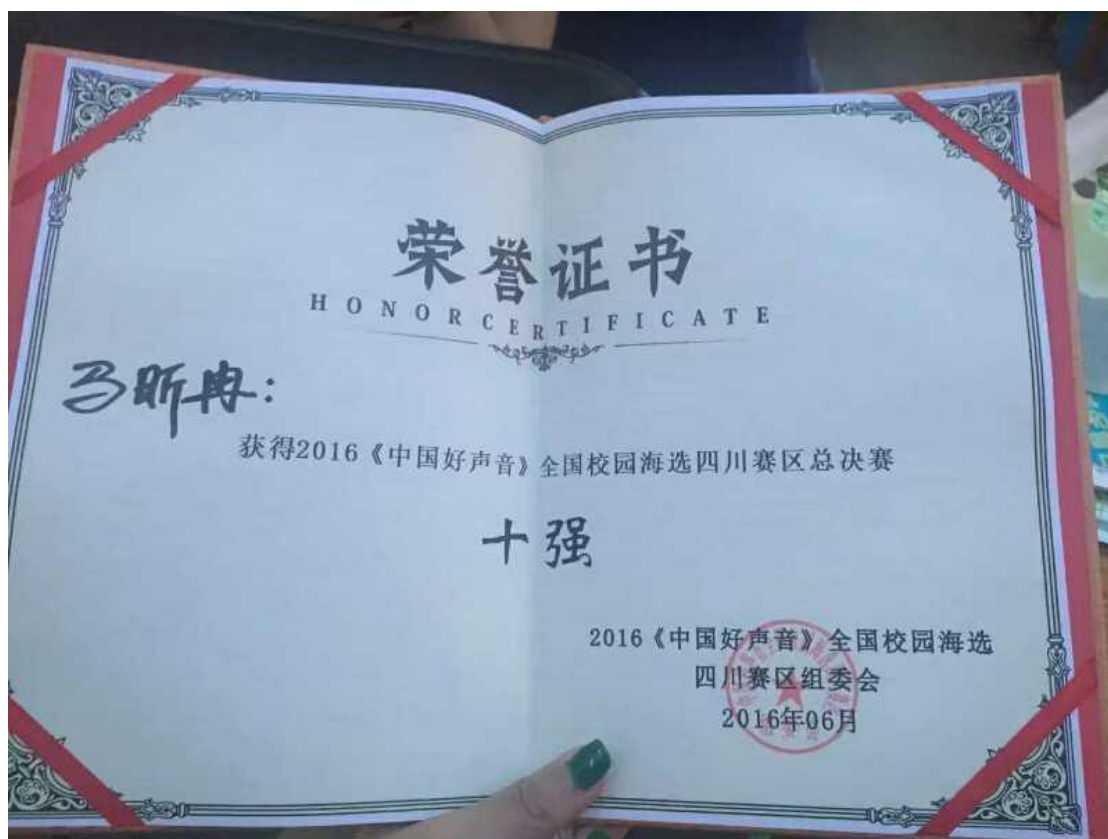 荣誉证书
HONOR CERTIFICATE
马昕冉:
获得2016《中国好声音》全国校园海选四川赛区总决赛
十强
2016《中国好声音》全国校园海选
四川赛区组委会
2016年06月